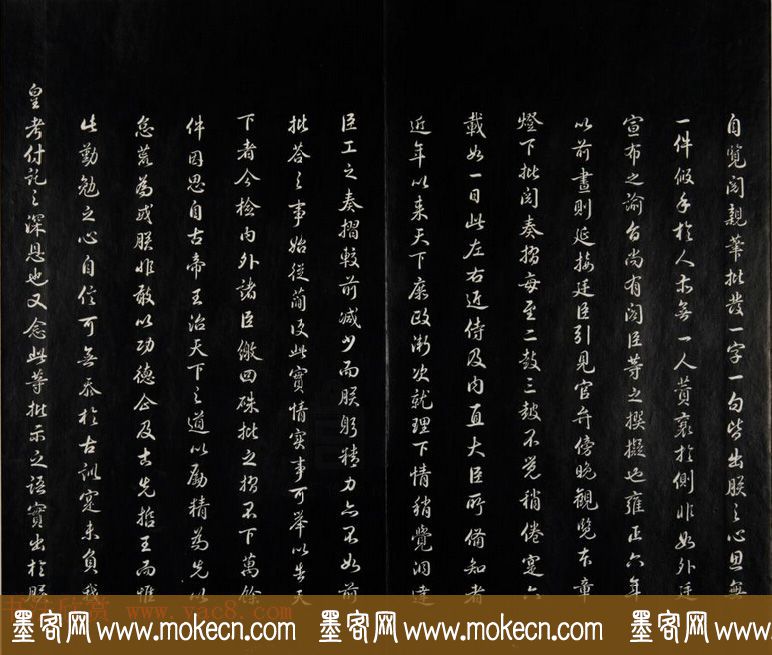 自覽閱親筆批發一字一句皆出朕之心思無
一件假手於人亦無一人贊襄於側非如外廷
宣布之諭旨尚有閣臣等之撰擬也雍正六年
以前晝則延接廷臣引見官弁傍晚觀覽本章
燈下批閱奏摺每至二鼓三鼓不覺稍倦寔六
載如一日此左右近侍及內直大臣所備知者
近年以來天下庶政漸次就理下情稍覺洞達
臣工之奏摺較前減少而朕躬精力亦不如前
批答之事始從簡便此實情實事可舉以告天
下者今檢內外諸臣繳回硃批之摺不下萬餘
件因思自古帝王治天下之道以勵精為先以
怠荒為戒朕非敢以功德企及古先哲王而惟
此勤勉之心自信可無忝於古訓寔未負我
皇考付託之深恩也又念此等批示之語實出於朕
書法欣賞 www.yac8.com
墨客网 www.mokecn.com 墨客网 www.mokecn.com 墨客网 www.mokecn.com